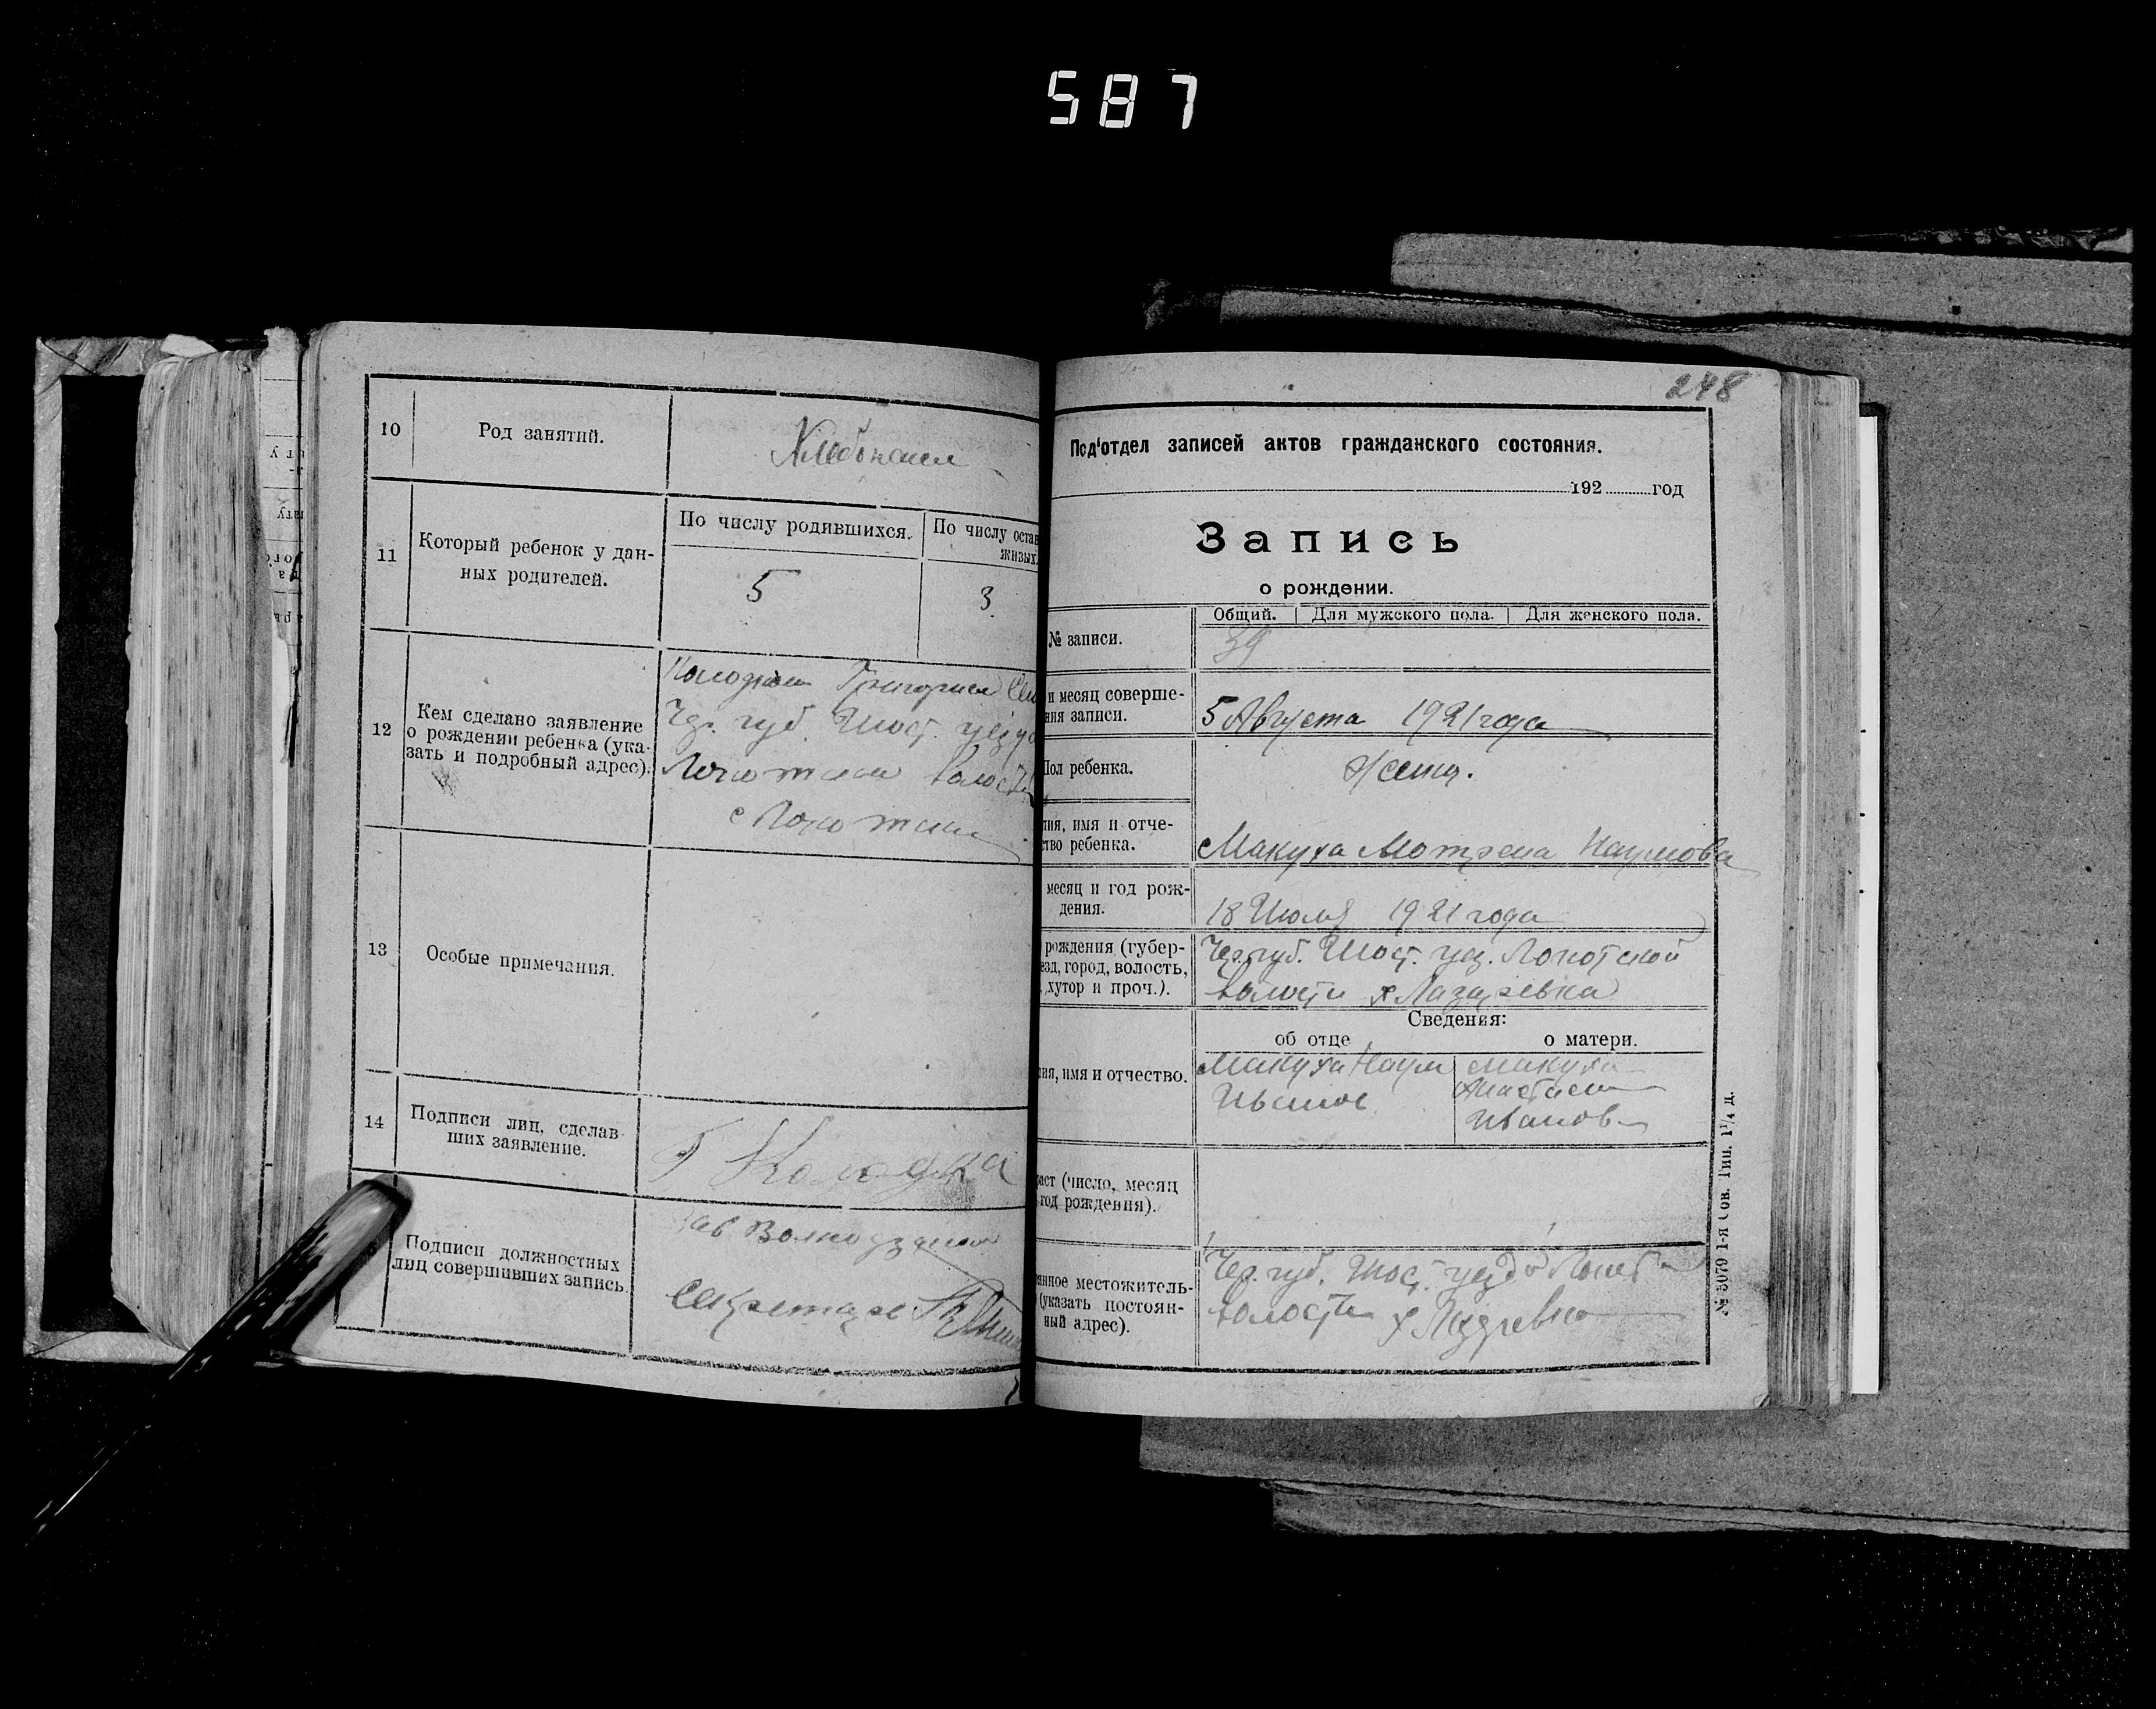 587
10
Род занятий.
11
Который ребенок у дан-
ных родителей.
По числу родившихся.
По числу остав
живых.
5
3
12
Кем сделано заявление
о рождении ребенка (ука-
зать и подробный адрес).
Чер. губ. Шост. уезда
с
13
Особые примечания.
14
Подписи лиц, сделав-
ших заявление.
Г Колодка
Подписи должностных
лиц совершивших запись.
Секретарь
248
Под'отдел записей актов гражданского состояния.
192 год
Запись
о рождении.
Общий. Для мужского пола. Для женского пола.
№ записи.
39
и месяц соверше-
ния записи.
5 Августа 1921 года
Пол ребенка.
Женщ.
лия, имя и отче-
ство ребенка.
Макуха Мотрена Наумова
месяц и год рож-
дения.
18 Июля 1921 года
рождения (губер-
езд, город, волость,
хутор и проч.).
Чер. губ. Шост. уез. Локотской
волости х Лазаревка
Сведения:
об отце
о матери.
лия, имя и отчество.
Макуха Наум
Иванов
Макуха
Анастасия
Иванов
раст (число, месяц
год рождения).
янное местожитель-
(указать постоян-
ный адрес).
Чер. губ. Шост. уезда
волости х Лазаревка
№ 3079 1-я Сов. Тип. 1¼ д.